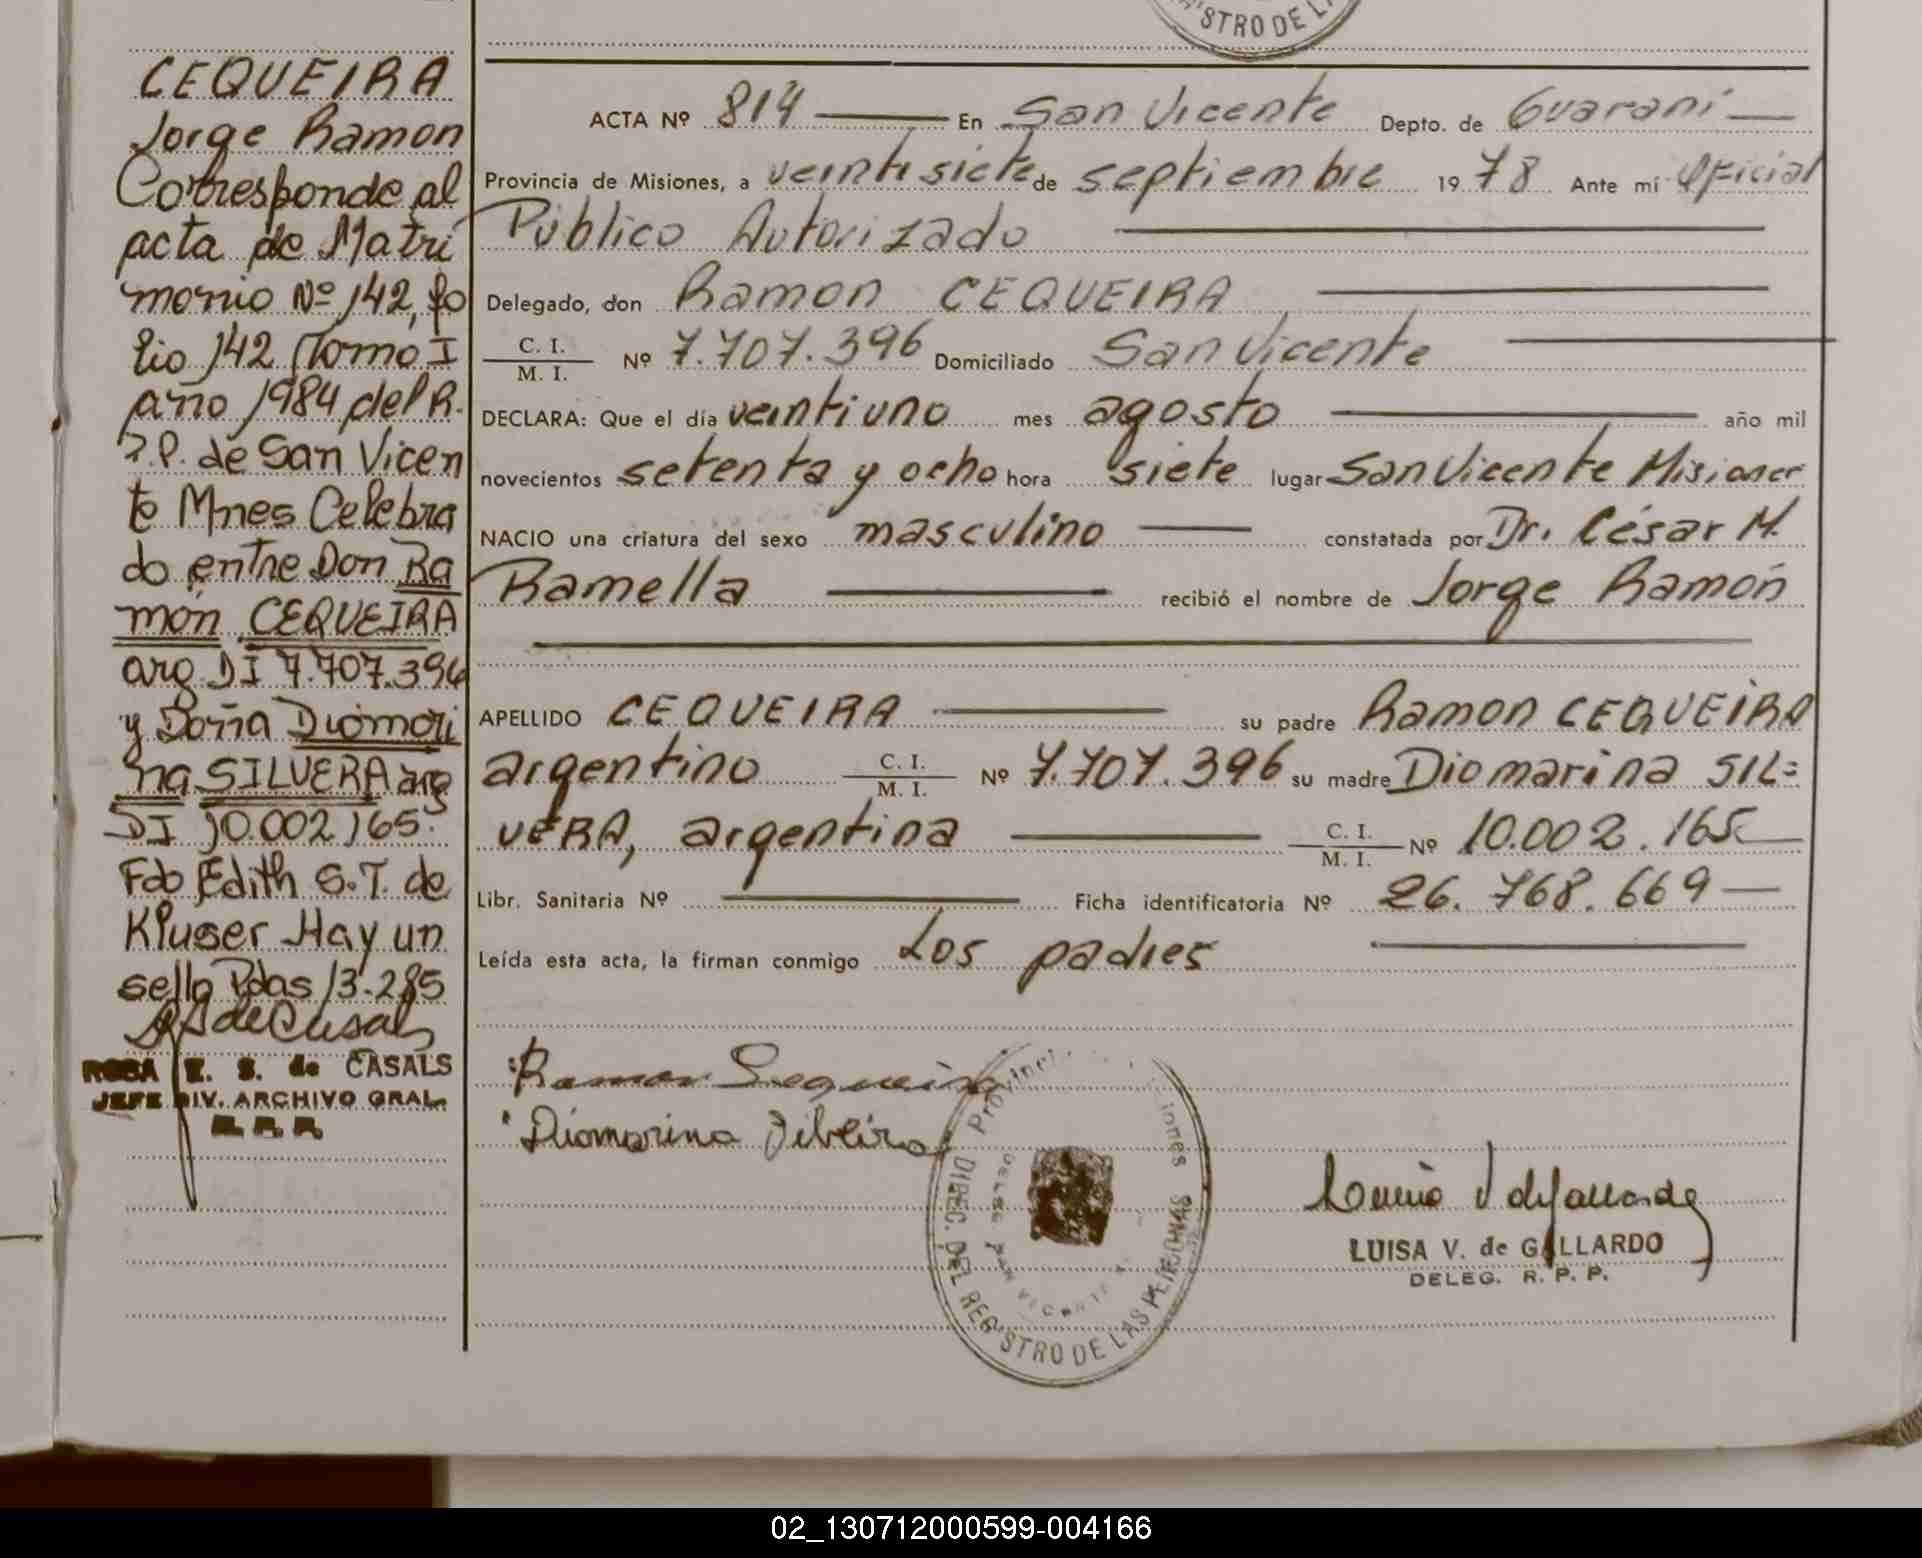 CEQUEIRA
Jorge Ramon
Corresponde al
acta de Matri
monio Nº 142, fo
lio 142 Tomo I
año 1984 del R.
P.P. de San Vicen
te Mnes Celebra
do entre Don Ra
món CEQUEIRA
arg DI 7.707.396
y Doña Diomori
na SILVERA arg
DI 10.002165.
Fdo Edith S.T. de
Kluser Hay un
sello Pdas 13-285
de Casals
ROSA E. S. de CASALS
JEFE DIV. ARCHIVO GRAL.
R.P.P.
STRO DE L
ACTA Nº 814 En San Vicente Depto. de Guaraní
Provincia de Misiones, a veintisiete de septiembre 1978 Ante mí Oficial
Público Autorizado
Delegado, don Ramon CEQUEIRA
C. I.
M. I. Nº 7.707.396 Domiciliado San Vicente
DECLARA: Que el día veintiuno mes agosto año mil
novecientos setenta y ocho hora siete lugar San Vicente Misiones
NACIO una criatura del sexo masculino constatada por Dr. César M.
Ramella recibió el nombre de Jorge Ramón
APELLIDO CEQUEIRA su padre Ramon CEQUEIRA
argentino C. I.
M. I. Nº 7.707.396 su madre Diomarina SIL=
VERA, argentina C. I.
M. I. Nº 10.002.165
Libr. Sanitaria Nº Ficha identificatoria Nº 26.768.669
Leída esta acta, la firman conmigo Los padres
Ramon Sequeira
Diomarina Silveira
DIREC. DEL REGISTRO DE LAS PERSONAS
Luisa V de Gallardo
LUISA V. de GALLARDO
DELEG. R. P. P.
02_130712000599-004166